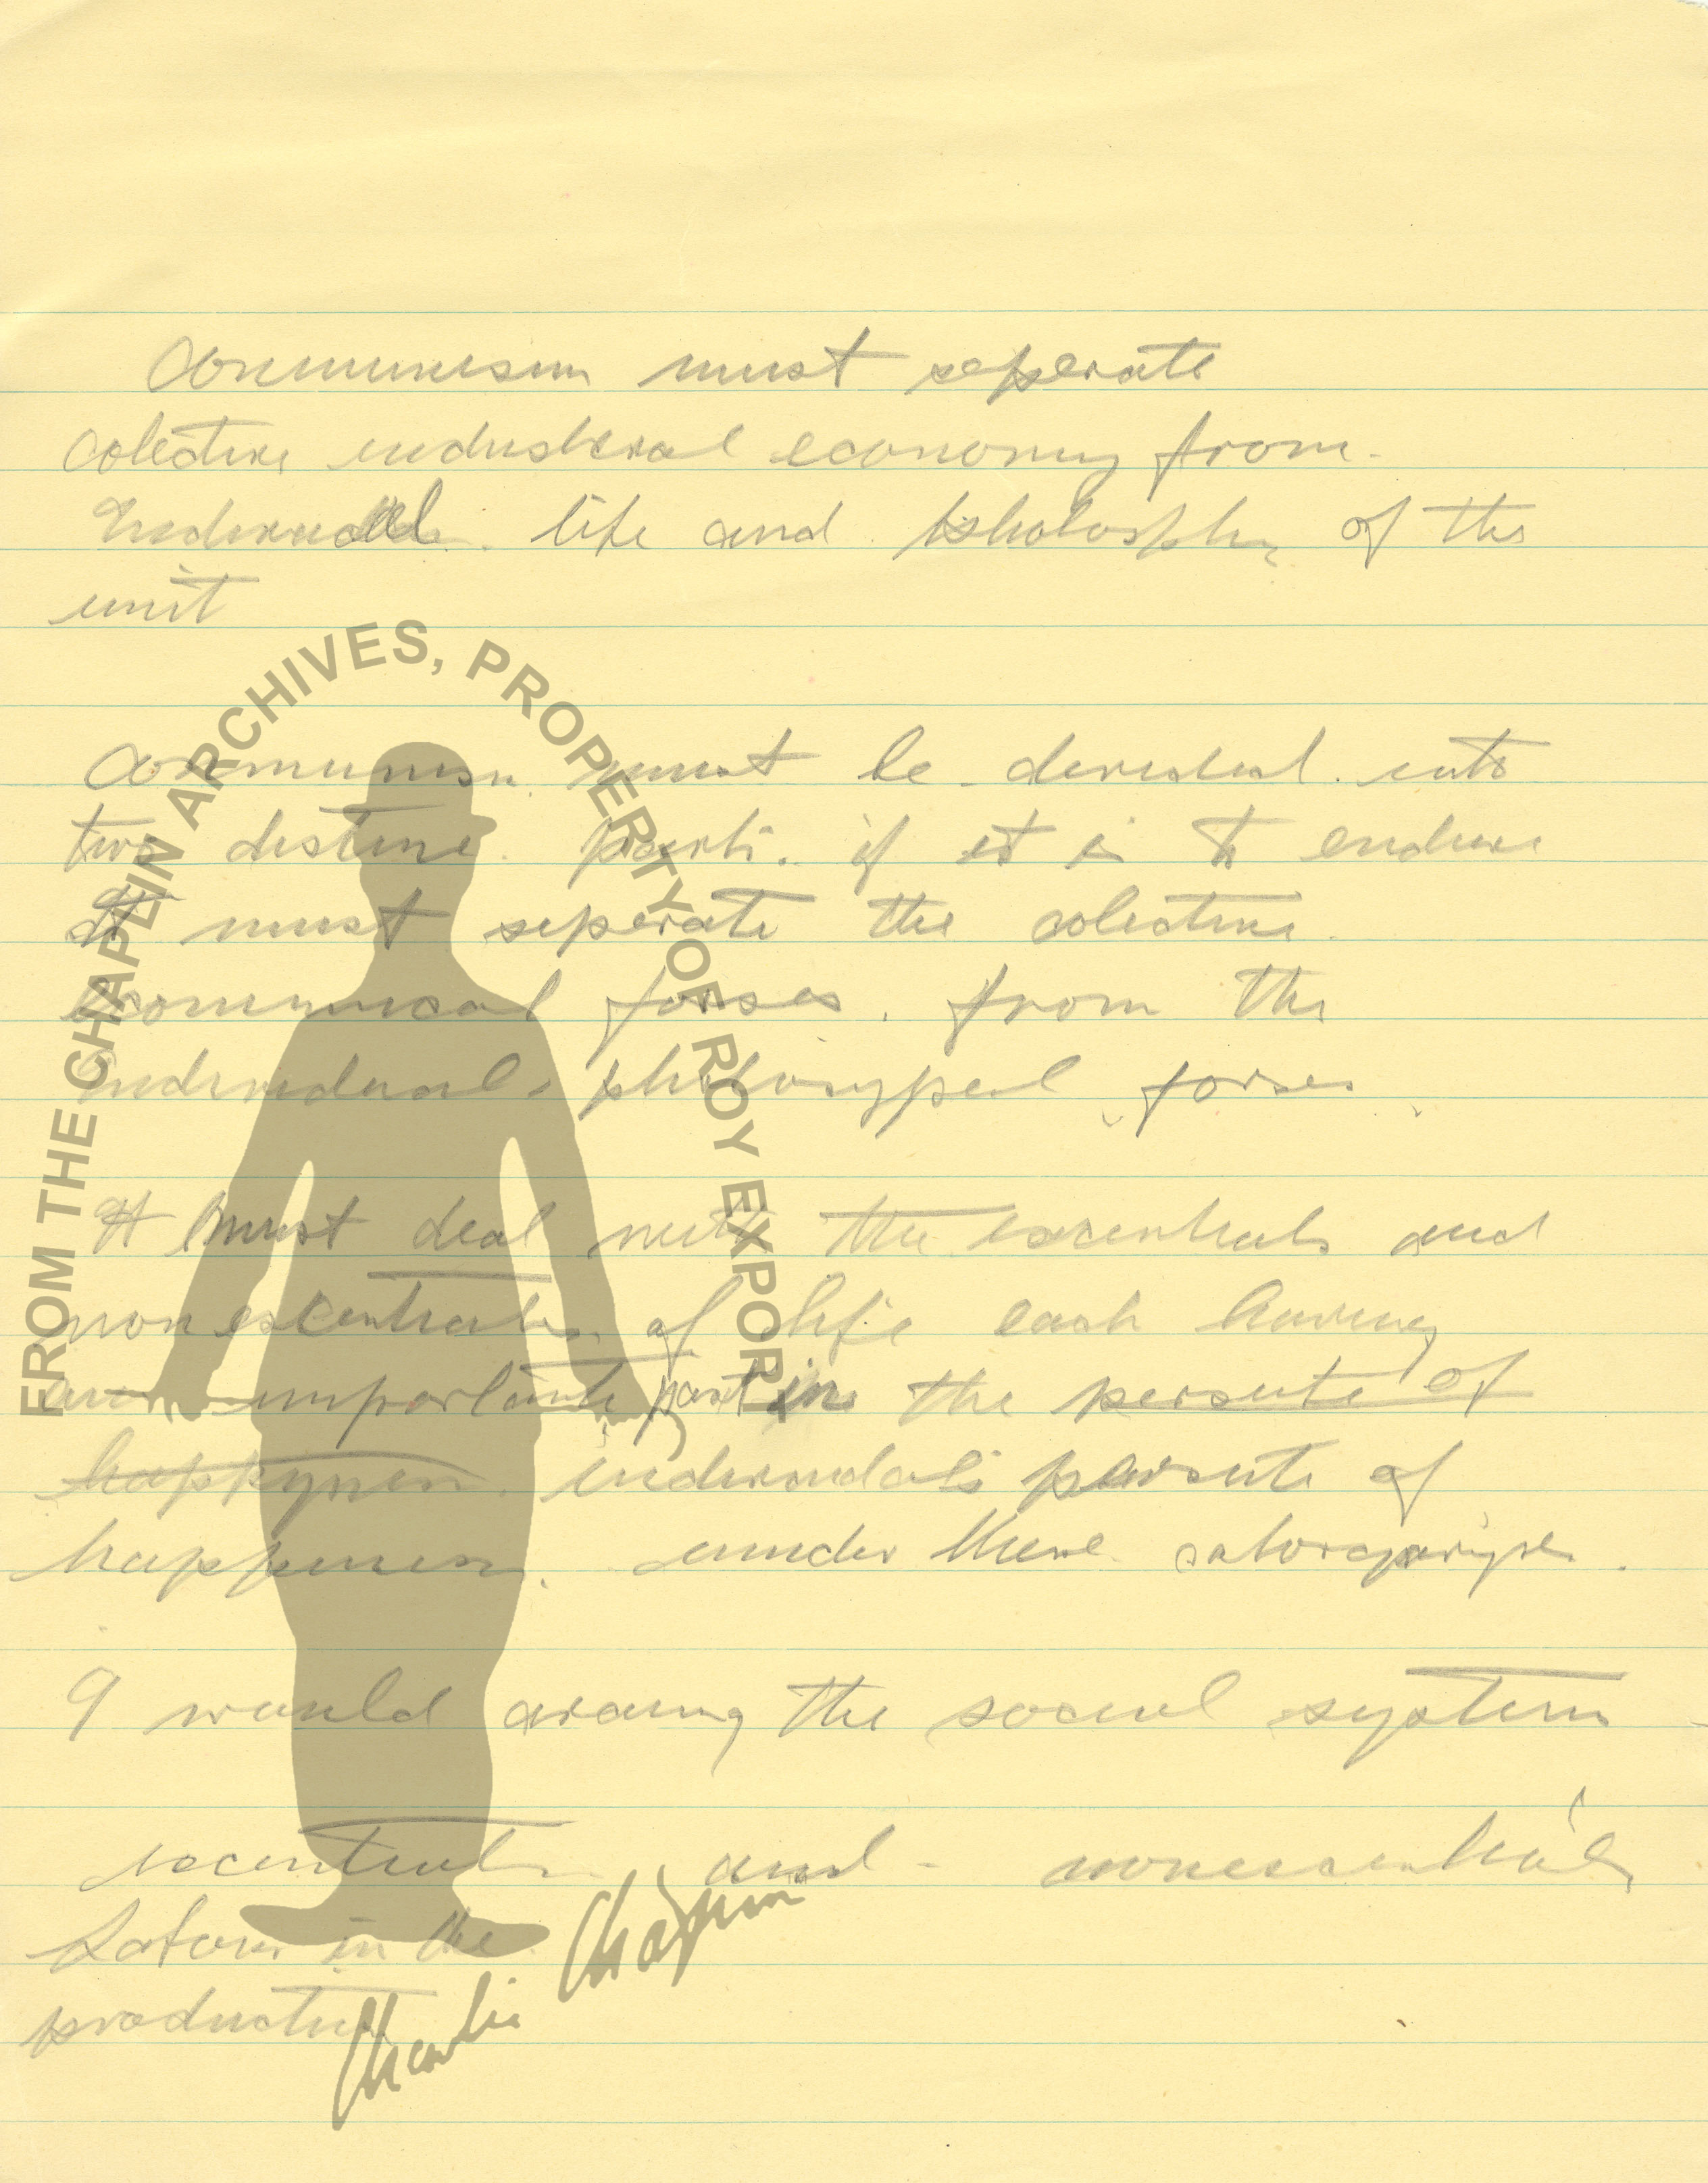 Communism must seperate
colective industrial economy from
individual life and philosophy of the
unit
Communism must be devided into
two distinc parts. if it is to endure
It must seperate the colective
economical forses. from the
individual philosypcal forses
It must deal with the escentials and
non escentials of life each having
an important part in the persute of
happyness. individals persute of
happiness. under these
I would arang the social system
escentials and nonescentials
in the
production
FROM THE CHAPLIN ARCHIVES, PROPERTY OF ROY EXPORT
Charlie Chaplin